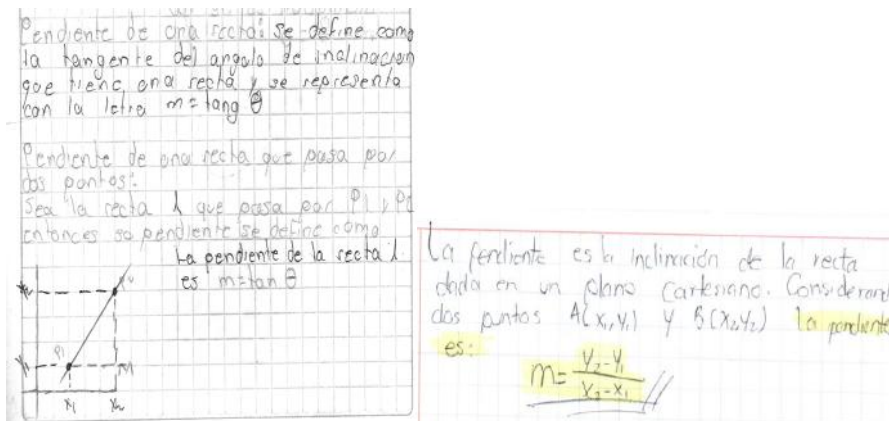 Pendiente de una recta: se define como
la tangente del angulo de inclinacion
que tiene una recta y se representa
con la letra m = tang θ
Pendiente de una recta que pasa por
dos puntos:
Sea la recta l que pasa por P1 y P2
entonces su pendiente se define como
La pendiente de la recta l
es m = tan θ
P1
x1 x2
La pendiente es la inclinación de la recta
dada en un plano cartesiano. Considerand
dos puntos A(x1,y1) y B(x2,y2) la pendiente
es:
m = y2-y1
x2-x1